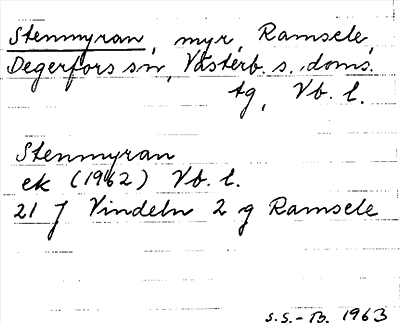 Stenmyran, myr, Ramsele,
Degerfors sn, Västerb. s. doms.
tg, Vb. l.
Stenmyran
ek (1962) Vb. l.
21 J Vindeln 2 g Ramsele
S.S.-B. 1963